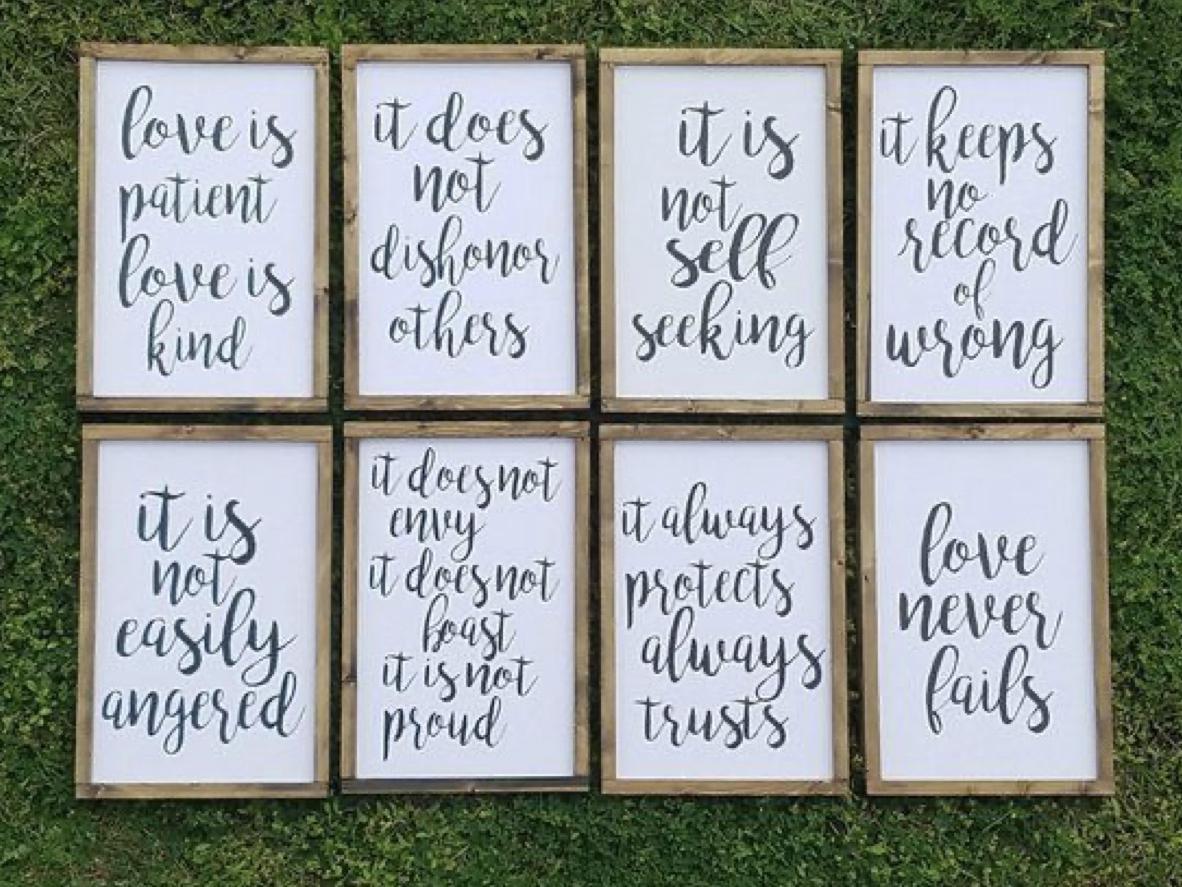 love is
patient
love is
kind
it does
not
dishonor
others
it is
not
self
seeking
it keeps
no
record
of
wrong
it is
not
easily
angered
it does not
envy
it does not
boast
it is not
proud
it always
protects
always
trusts
love
never
fails